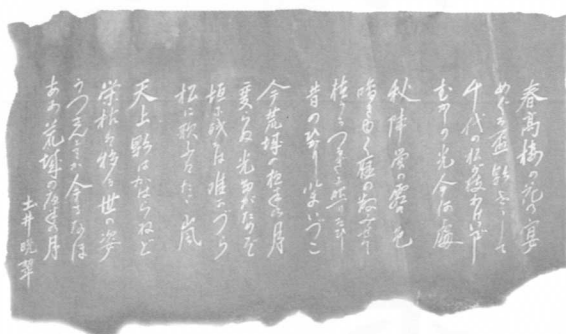 春高楼の花の宴
めぐる盃影さして
千代の松が枝わけ出でし
むかしの光今何處
秋陣営の霜の色
鳴き行く雁の数見せて
植うるつるぎに照りそひし
昔の光今いづこ
今荒城の夜半の月
変らぬ光誰がためぞ
垣に残るは唯かづら
松に歌ふはただ嵐
天上影はかはらねど
栄枯は移る世の姿
うつさんとてか今もなほ
ああ荒城の夜半の月
土井晩翠